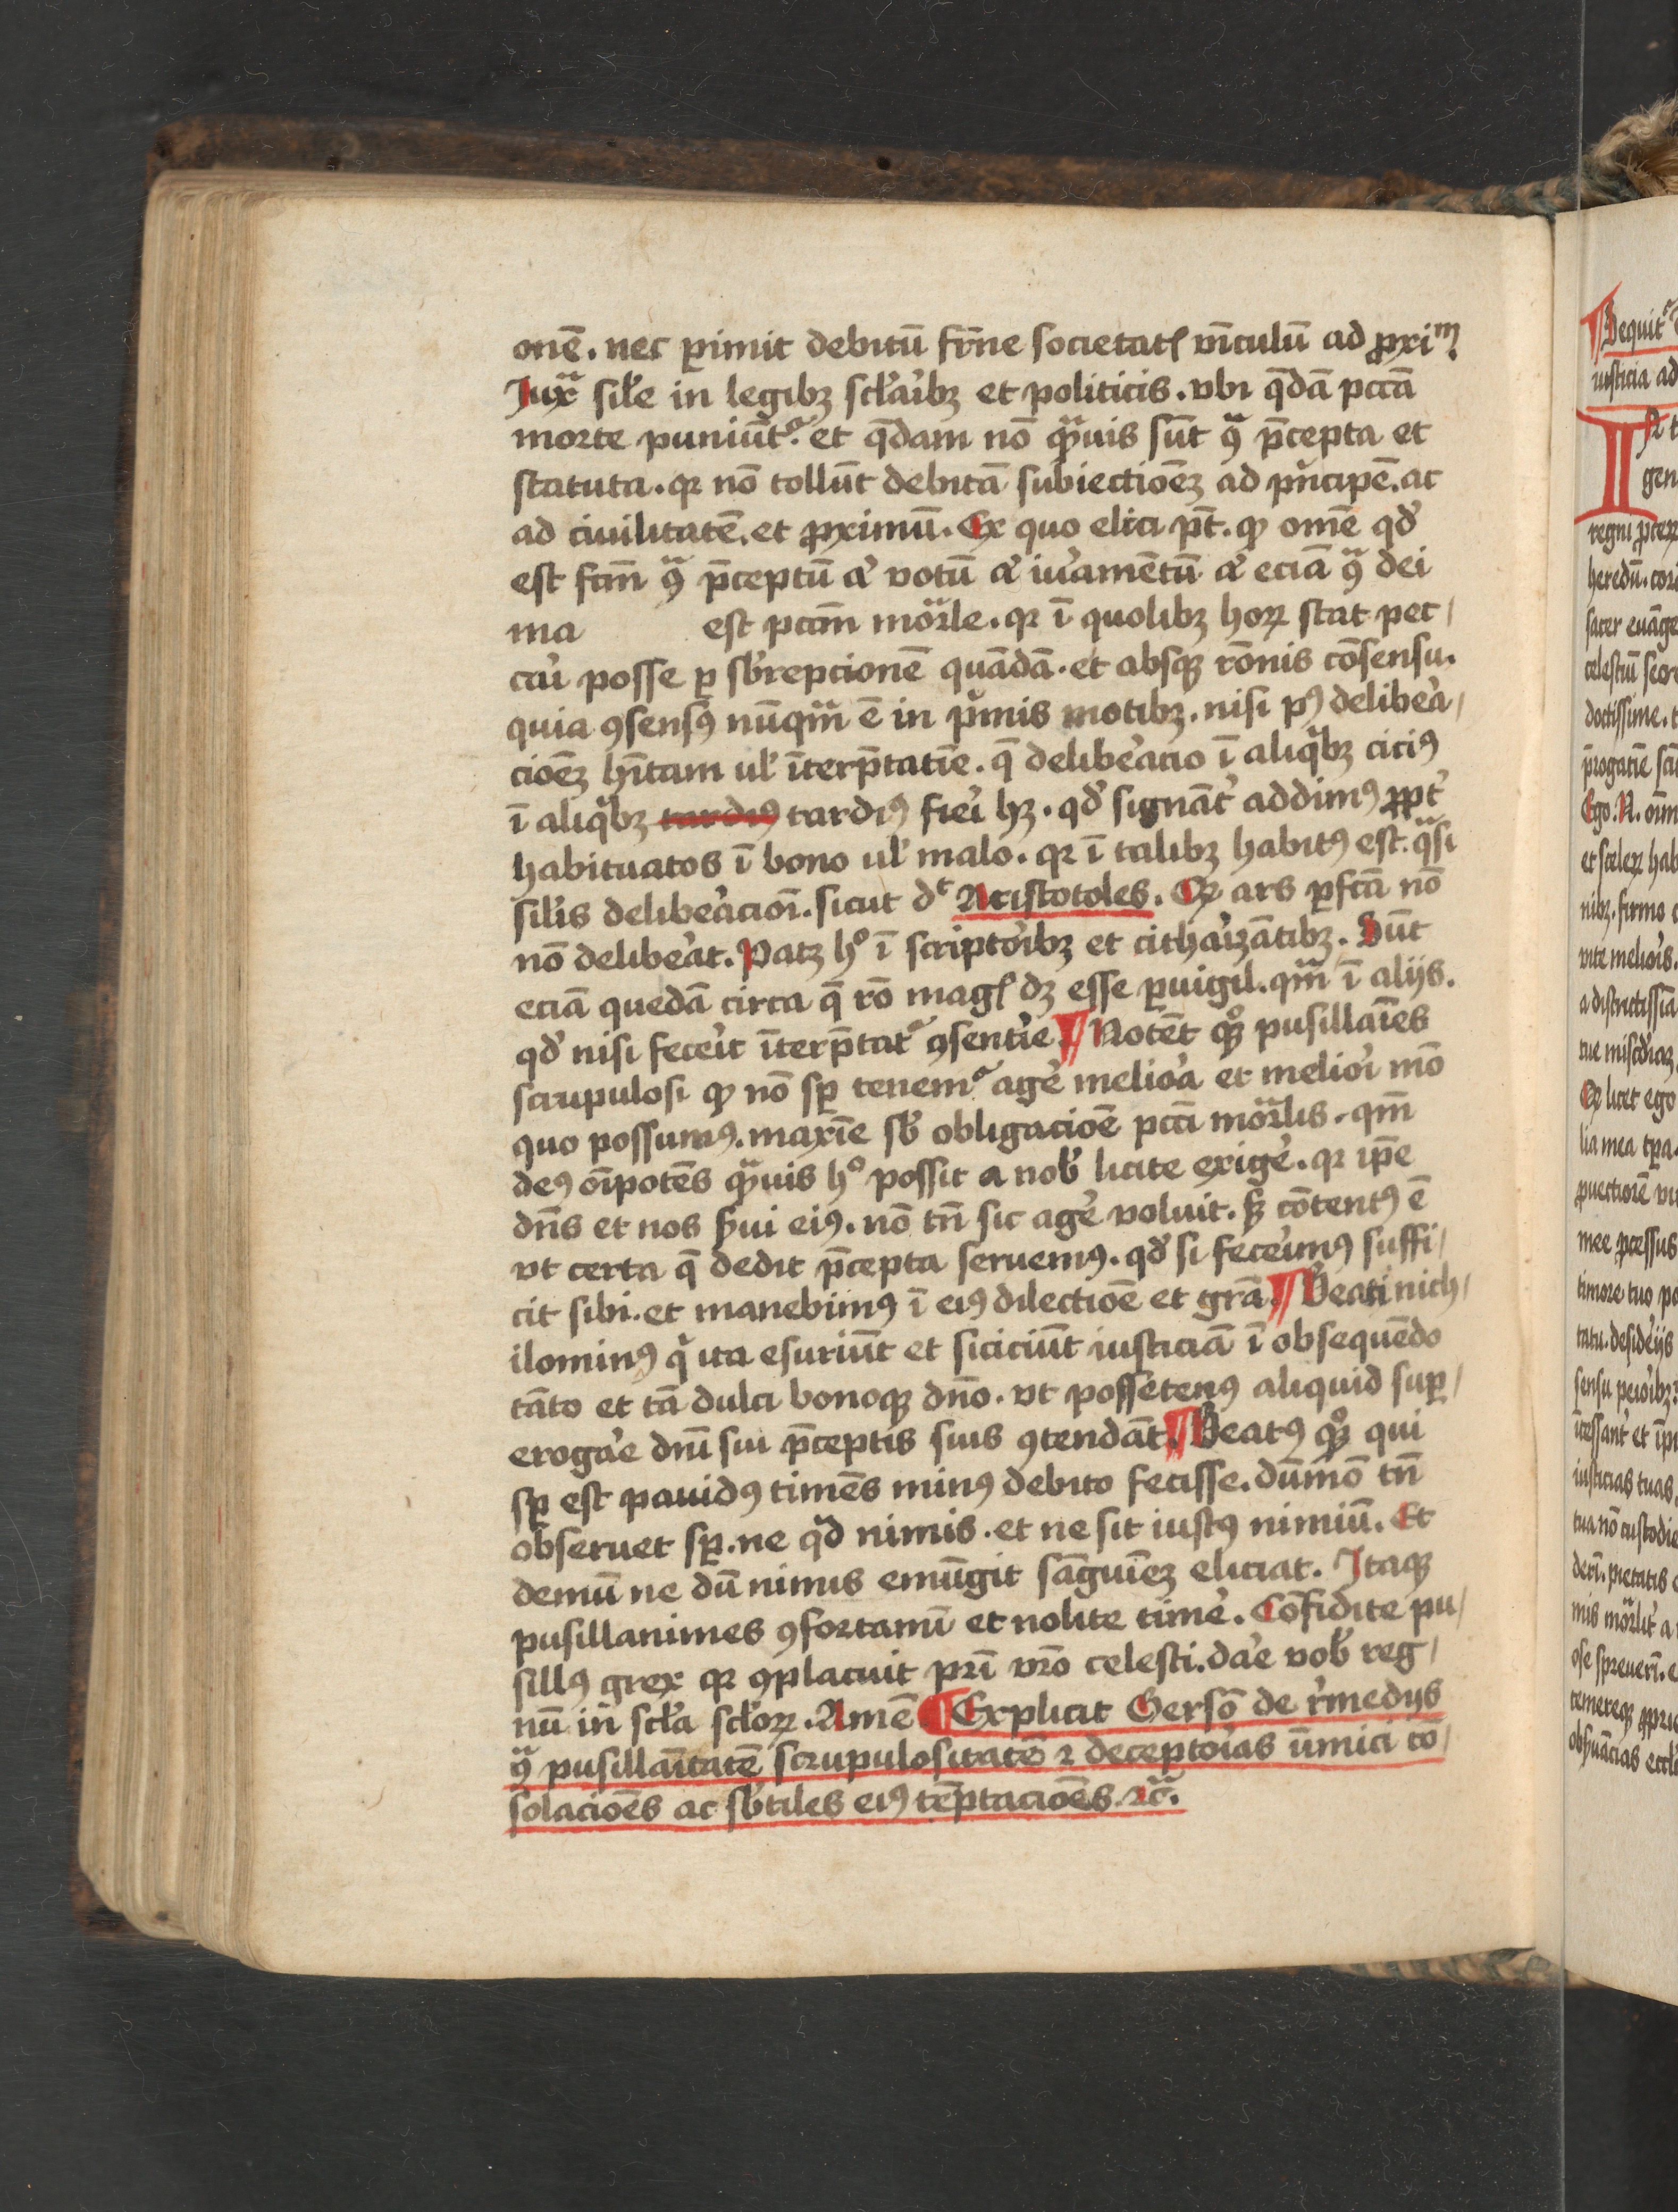 onē. nec ꝑimit debitū frn̄e societatꝭ vīculū ad ꝓxiᵐ.
Iuxᵃ sil̛e in legibꝫ scl̛aribꝫ et politicis. vbi q̄dā pctā
morte puniūtʳ. et q̄dam nō qᵃuis sūt ꝯᵃ p̄cepta et
statuta. qꝛ nō tollūt debitā subiectioēꝫ ad pⁱncipē. ac
ad ciuilitatē. et ꝓximū. Ex quo elici pt̄. ꝙ omē qd̛
est fcm̄ ꝯᵃ p̄ceptū a̛ votū a̛ iura̛mētū a̛ eciā ꝯᵃ dei
ma est pctm̄ moᵃrle. qꝛ ī quolibꝫ hoꝝ stat pec/
cari̛ posse ꝑ sb̛repcionē quādā. et absqꝫ rōnis cōsensu.
quia ꝯsensꝰ nūqᵃm ē in pⁱmis motibꝫ. nisi pꝰ delibera̛/
cioēꝫ hn̄tam ul̛ īterp̄tatiē. q̄ delibera̛cio ī aliqⁱbꝫ ciciꝰ
ī aliqⁱbꝫ tardiꝰ tardiꝰ fieri̛ hꝫ. qd̛ signāt̛ addimꝰ ꝓpt̛
habituatos ī bono ul̛ malo. qꝛ ī talibꝫ habitꝰ est. qᵃsi
sil̛is delibera̛cioī. sicut dᶜ Aristotoles. Qꝛ ars ꝑfctā nō
nō delibera̛t. Patꝫ hᵒ ī scriptori̛bꝫ et cithari̛zātibꝫ. Sūt
eciā quedā circa q̄ rō magꝭ dꝫ esse ꝑuigil. qᵃm ī alijs.
qd̛ nisi feceri̛t īterp̄tatʳ ꝯsentire̛ ¶ Notēt qꝫᵒ pusillaīes
scrupulosi ꝙ nō sꝑ tenemʳ age̛ meliora̛ et meliori̛ mō
quo possumꝰ. maxīe sb̛ obligacioē pctī moᵃrlis. qm̄
deꝰ oīpotēs qᵃuis hᵒ possit a nob̛ licite exige̛. qꝛ ip̄e
dn̄s et nos s̛ui eiꝰ. nō tn̄ sic age̛ voluit. sꝫ cōtentꝰ ē
vt certa q̄ dedit p̄cepta seruemꝰ. qd̛ si feceri̛mꝰ suffi/
cit sibi. et manebimꝰ ī eiꝰ dilectioē et grā. ¶ Beati nich/
ilominꝰ qⁱ ita esuriūt et siciciūt iusticiā ī obsequēdo
tāto et tā dulci bonoqꝫ dn̄o. vt possetenꝰ aliquid suꝑ/
erogare̛ dnī sui p̄ceptis suis ꝯtendāt. ¶ Beatꝰ qꝫᵒ qui
sꝑ est pauidꝰ timēs minꝰ debito fecisse. dūmō tn̄
obseruet sꝑ. ne qⁱd nimis. et ne sit iustꝰ nimiū. Et
demū ne dū nimis emūgit sāguīeꝫ eliciat. Itaqꝫ
pusillanimes ꝯfortamī et nolite time̛. Cōfidite pu/
sillꝰ grex qꝛ ꝯplacuit prī vr̄o celesti. dare̛ vob̛ reg/
nū in scl̛a scl̛oꝝ. Amē ¶ Explicit Gersō de r̛medijs
ꝯᵃ pusillaītatē scrupulositatē ⁊ deceptori̛as īimici cō/
solacioēs ac sb̛tiles eiꝰ tēptacioēs ⁊cᵃ.